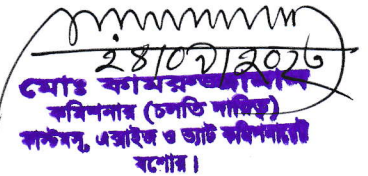 ২৪/০৮/২০২৩
মোঃ কামরুজ্জামান
কমিশনার (চলতি দায়িত্ব)
কাস্টমস্, এক্সাইজ ও ভ্যাট কমিশনারেট
যশোর।